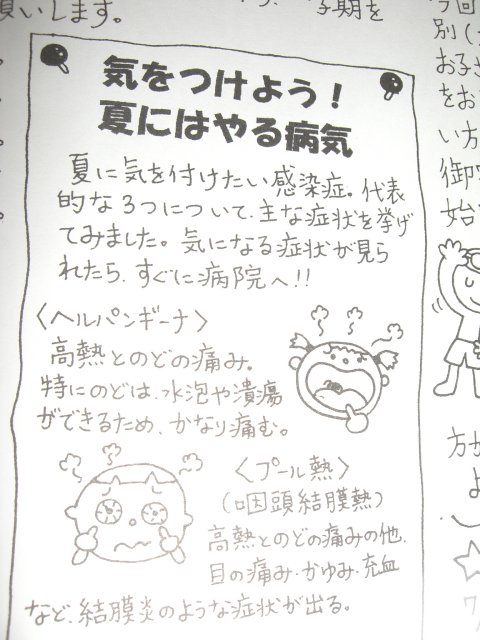 願いします。
学期を
気をつけよう！
夏にはやる病気
夏に気を付けたい感染症。代表
的な3つについて、主な症状を挙げ
てみました。気になる症状が見ら
れたら、すぐに病院へ!!
〈ヘルパンギーナ〉
高熱とのどの痛み。
特にのどは、水泡や潰瘍
ができるため、かなり痛む。
〈プール熱〉
(咽頭結膜熱)
高熱とのどの痛みの他、
目の痛み・かゆみ・充血
など、結膜炎のような症状が出る。
今回
別(
お子さ
をお
い方
御
始
方が
よ